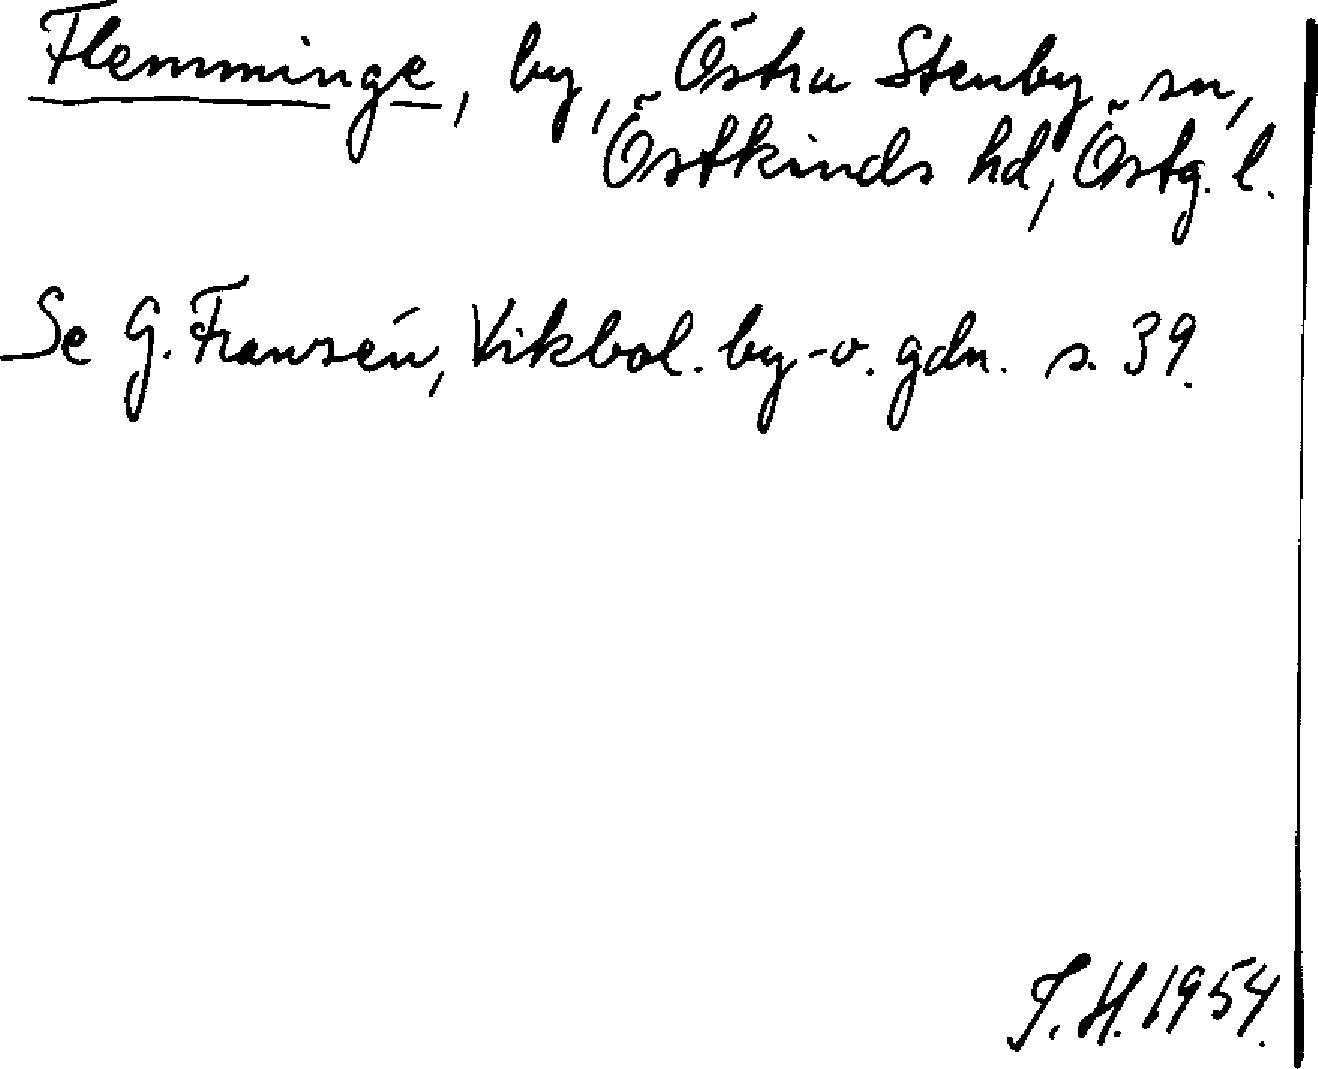 Flemminge, by, Östra Stenby sn,
Östkinds hd, Östg. l.
Se G. Franzén, Vikbol. by- o. gdn. s. 39.
T. H. 1954.